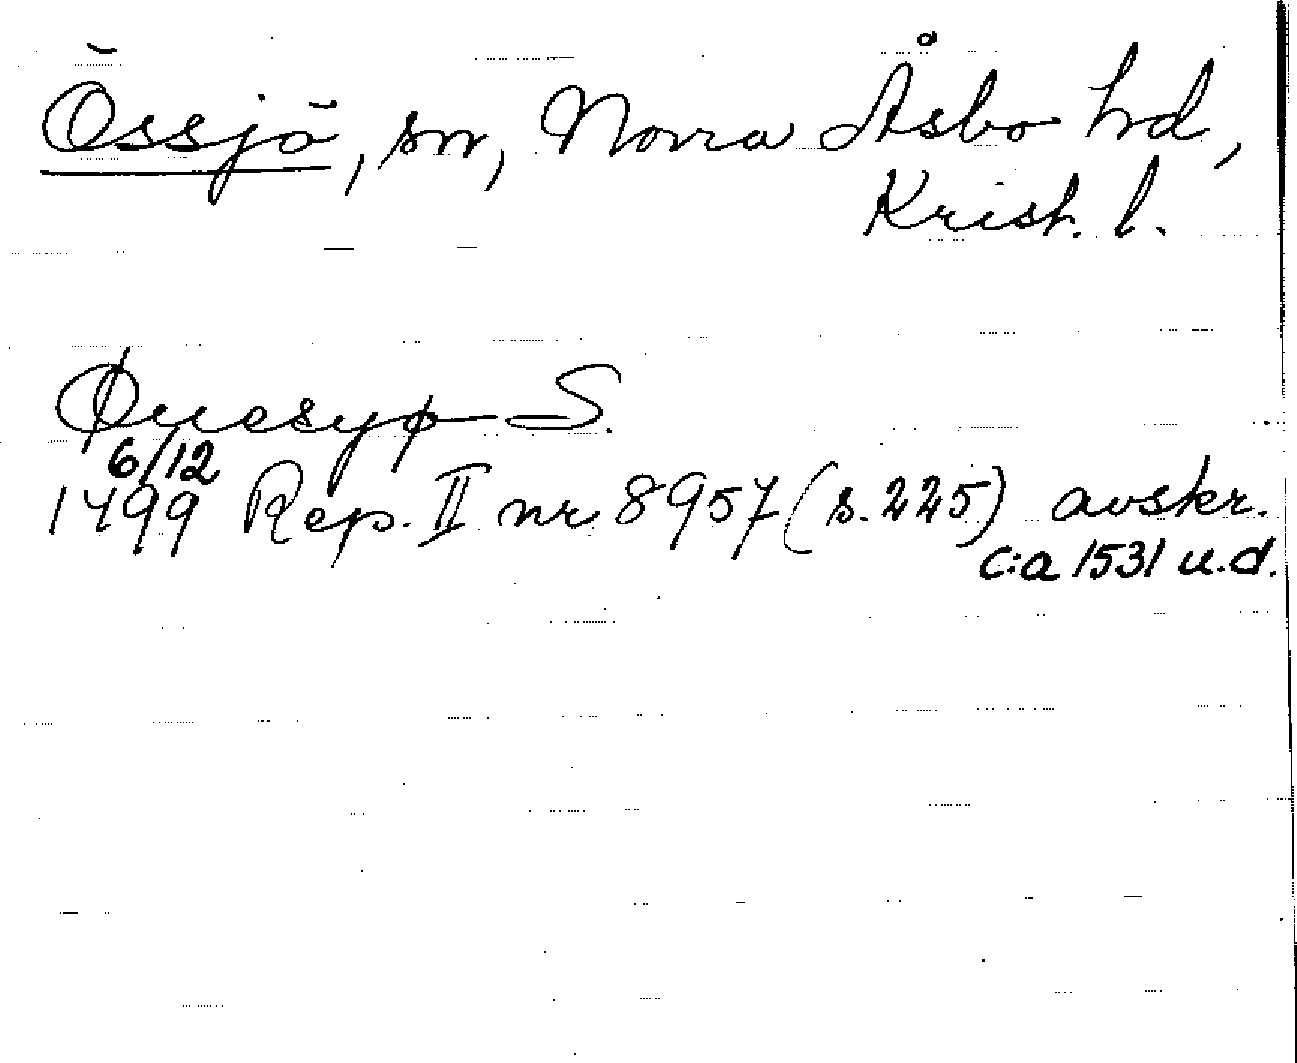 Össjö, sn, Norra Åsbo hd,
Krist. l.
Øuesyø S.
6/12
1499 Rep. II nr 8957 (s. 225) avskr.
c:a 1531 u.d.